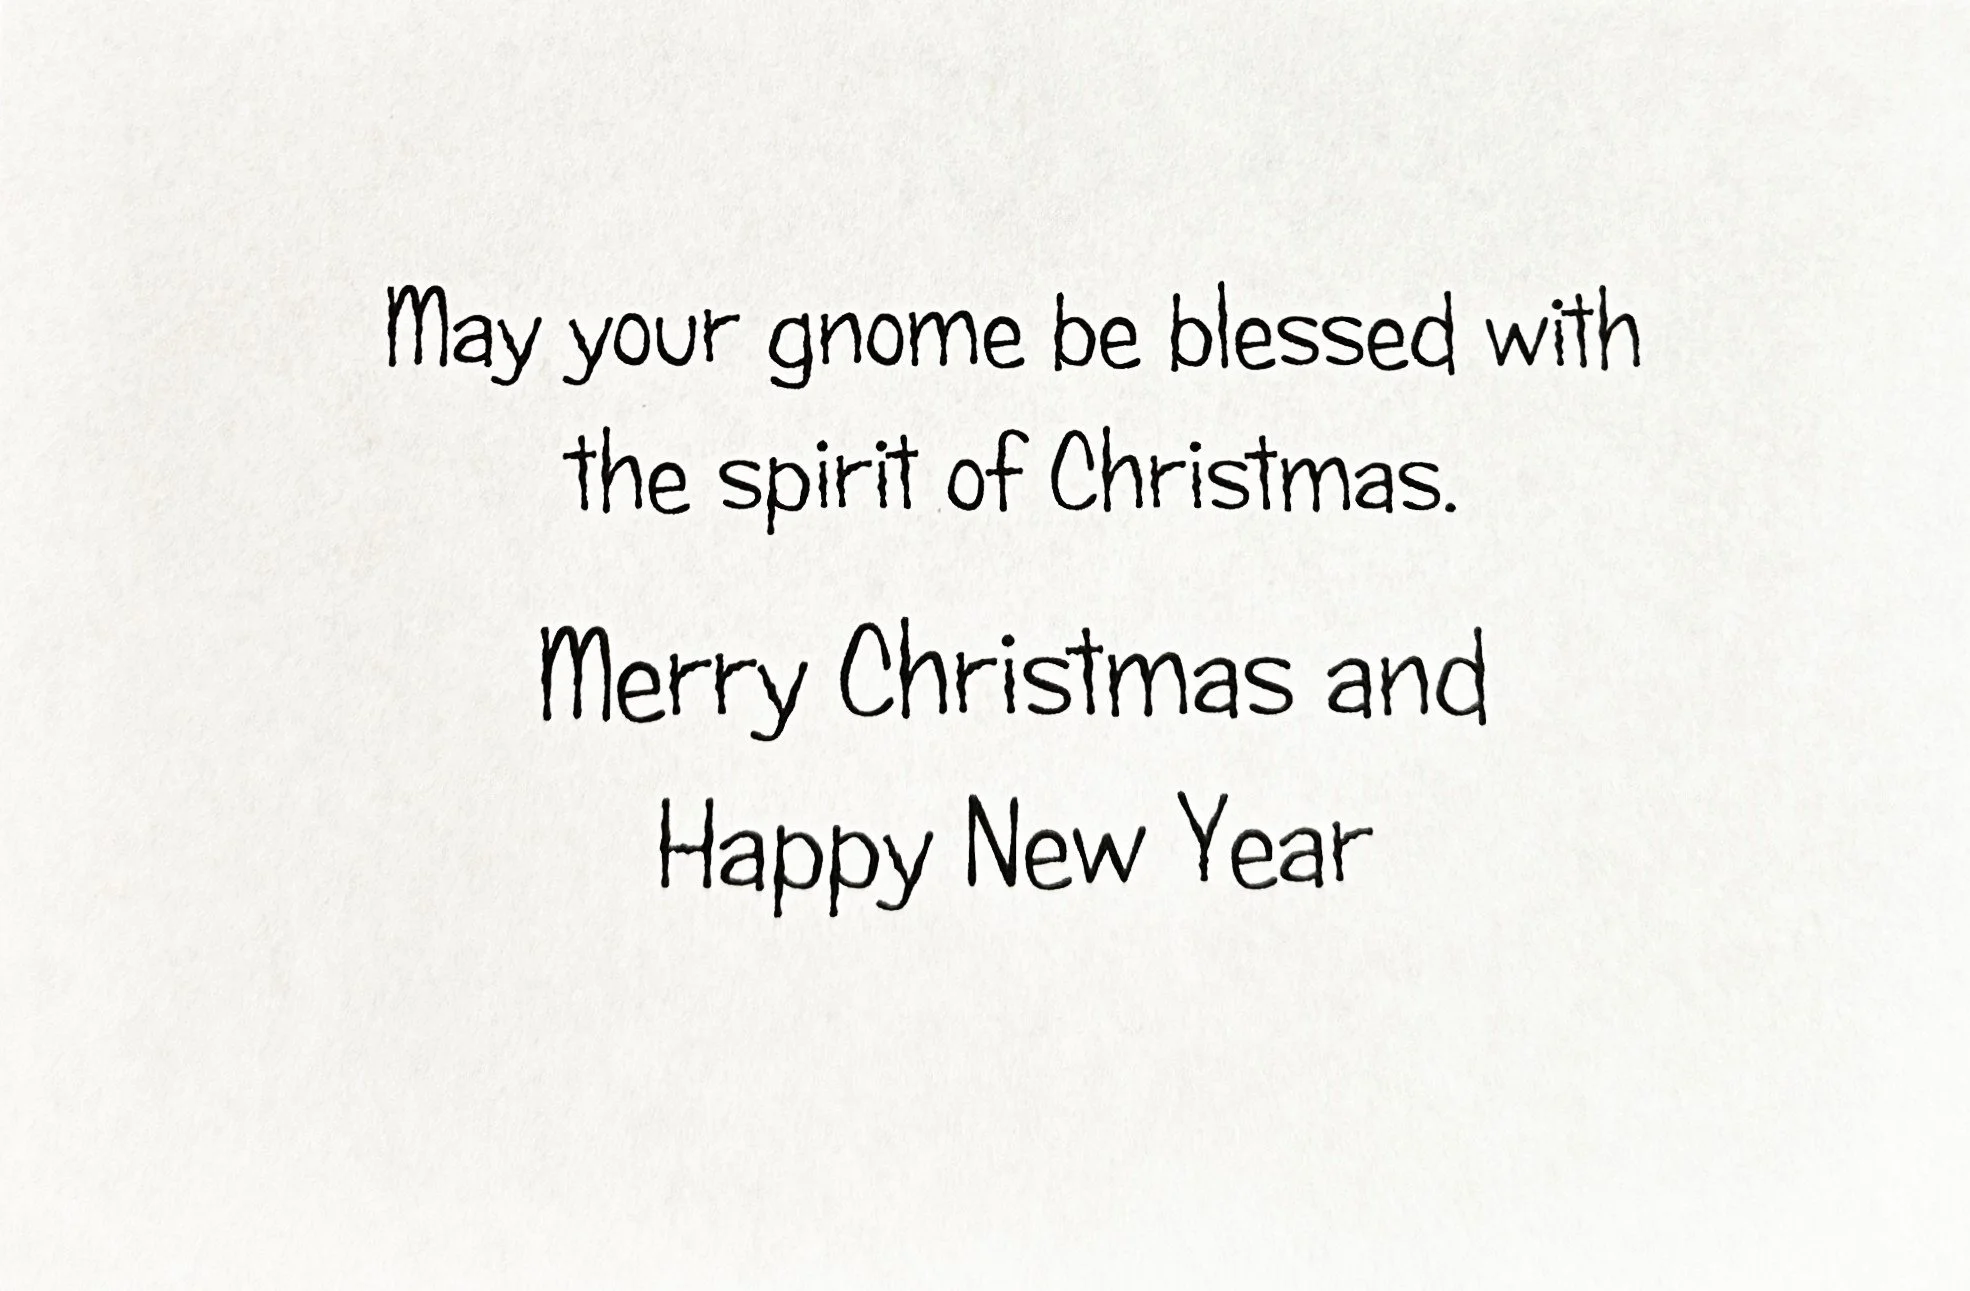 May your gnome be blessed with
the spirit of Christmas.
Merry Christmas and
Happy New Year